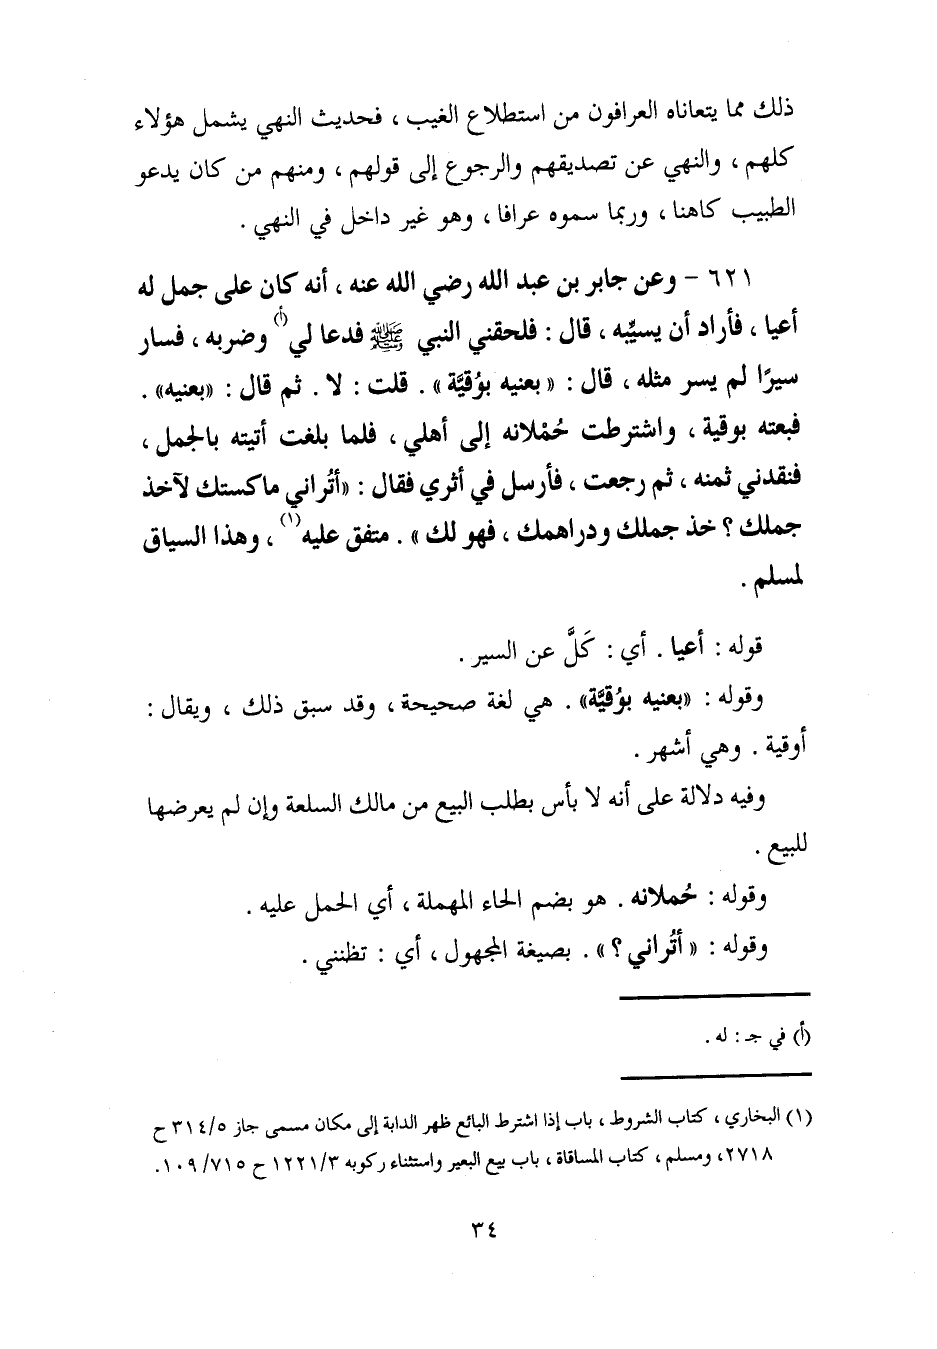 ذلك مما يتعاناه العرافون من استطلاع الغيب ، فحديث النهي يشمل هؤلاء
كلهم ، والنهي عن تصديقهم والرجوع إلى قولهم ، ومنهم من كان يدعو
الطبيب كاهنا ، وربما سموه عرافا ، وهو غير داخل في النهي .
٦٢١ - وعن جابر بن عبد الله رضي الله عنه ، أنه كان على جمل له
أعيا ، فأراد أن يسيِّبه ، قال : فلحقني النبي ﷺ فدعا لي(أ) وضربه ، فسار
سيرًا لم يسر مثله ، قال : « بعنيه بوُقيَّة » . قلت : لا . ثم قال : «بعنيه» .
فبعته بوقية ، واشترطت حُمْلانه إلى أهلي ، فلما بلغت أتيته بالجمل ،
فنقدني ثمنه ، ثم رجعت ، فأرسل في أثري فقال : «أتُراني ماكستك لآخذ
جملك ؟ خذ جملك ودراهمك ، فهو لك » . متفق عليه(١) ، وهذا السياق
لمسلم .
قوله : أعيا . أي : كَلَّ عن السير .
وقوله : «بعنيه بوُقيَّة» . هي لغة صحيحة ، وقد سبق ذلك ، ويقال :
أوقية . وهي أشهر .
وفيه دلالة على أنه لا بأس بطلب البيع من مالك السلعة وإن لم يعرضها
للبيع .
وقوله : حُملانه . هو بضم الحاء المهملة ، أي الحمل عليه .
وقوله : « أتُراني ؟ » . بصيغة المجهول ، أي : تظنني .
(أ) في جـ : له .
(١) البخاري ، كتاب الشروط ، باب إذا اشترط البائع ظهر الدابة إلى مكان مسمى جاز ٣١٤/٥ ح
٢٧١٨، ومسلم ، كتاب المساقاة ، باب بيع البعير واستثناء ركوبه ١٢٢١/٣ ح ١٠٩/٧١٥.
٣٤